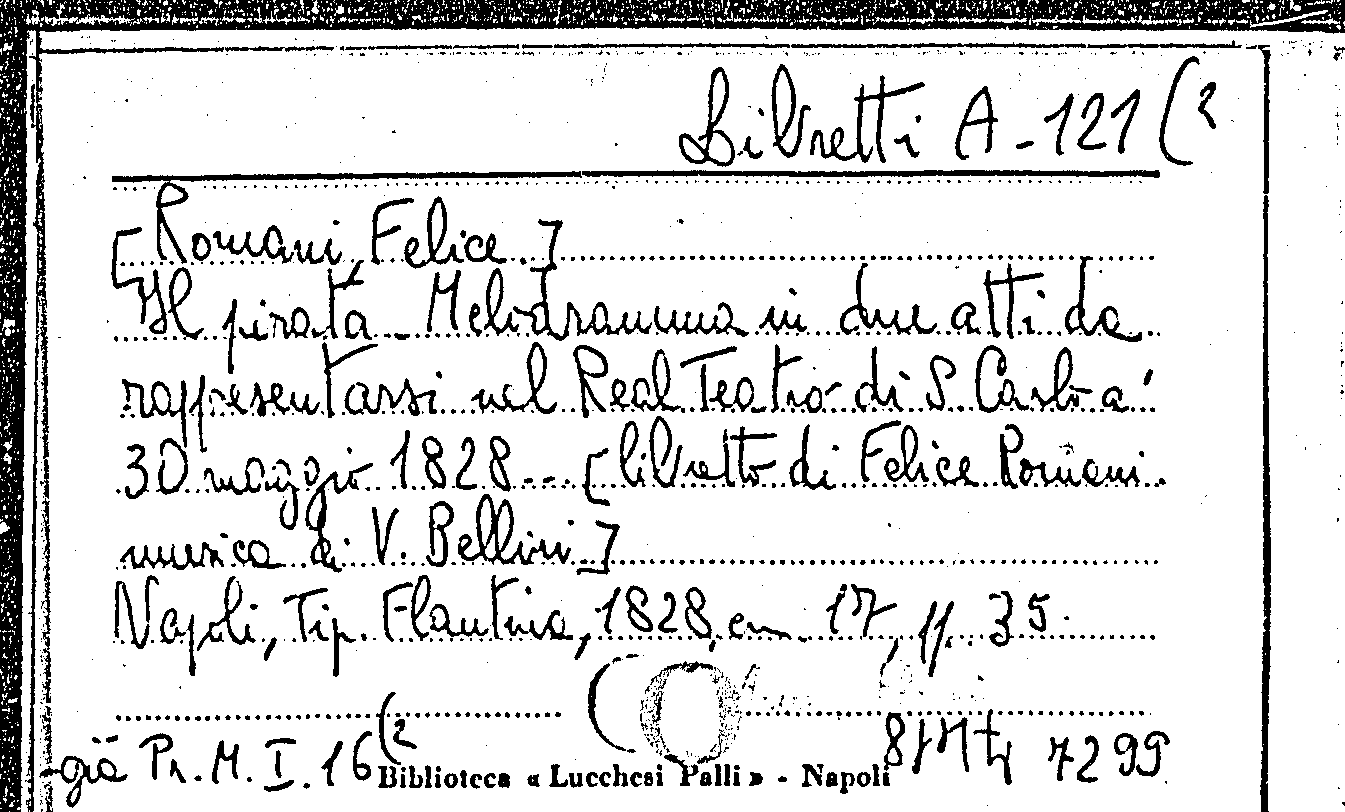 Libretti A-121 (2
[Romani, Felice.]
Il pirata - Melodramma in due atti da
rappresentarsi nel Real Teatro di S. Carlo a'
30 maggio 1828... [libretto di Felice Romani.
musica di V. Bellini]
Napoli, Tip. Flautina, 1828, cm. 17, pp. 35.
già Pr. M. I. 16 (2
Biblioteca « Lucchesi Palli » - Napoli
7299